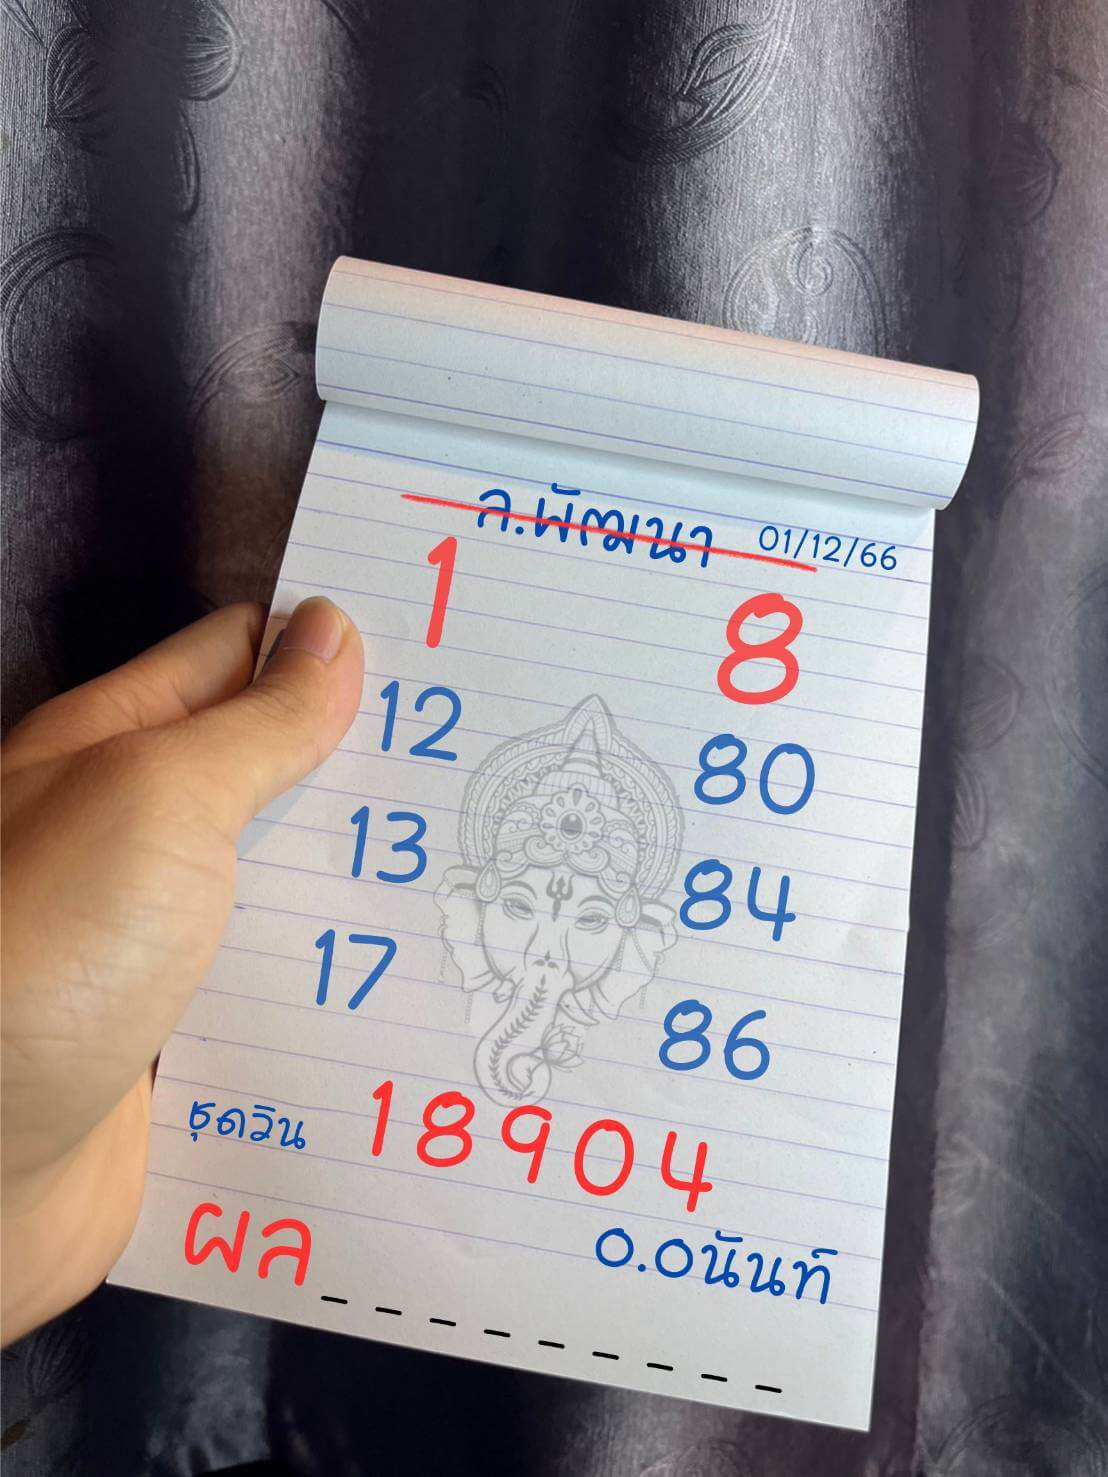 ล.พัฒนา 01/12/66
1 8
12 80
13 84
17 86
ชุดวิน 18904
ผล_ _ _ _ _ _ _ _ _
อ.อนันท์